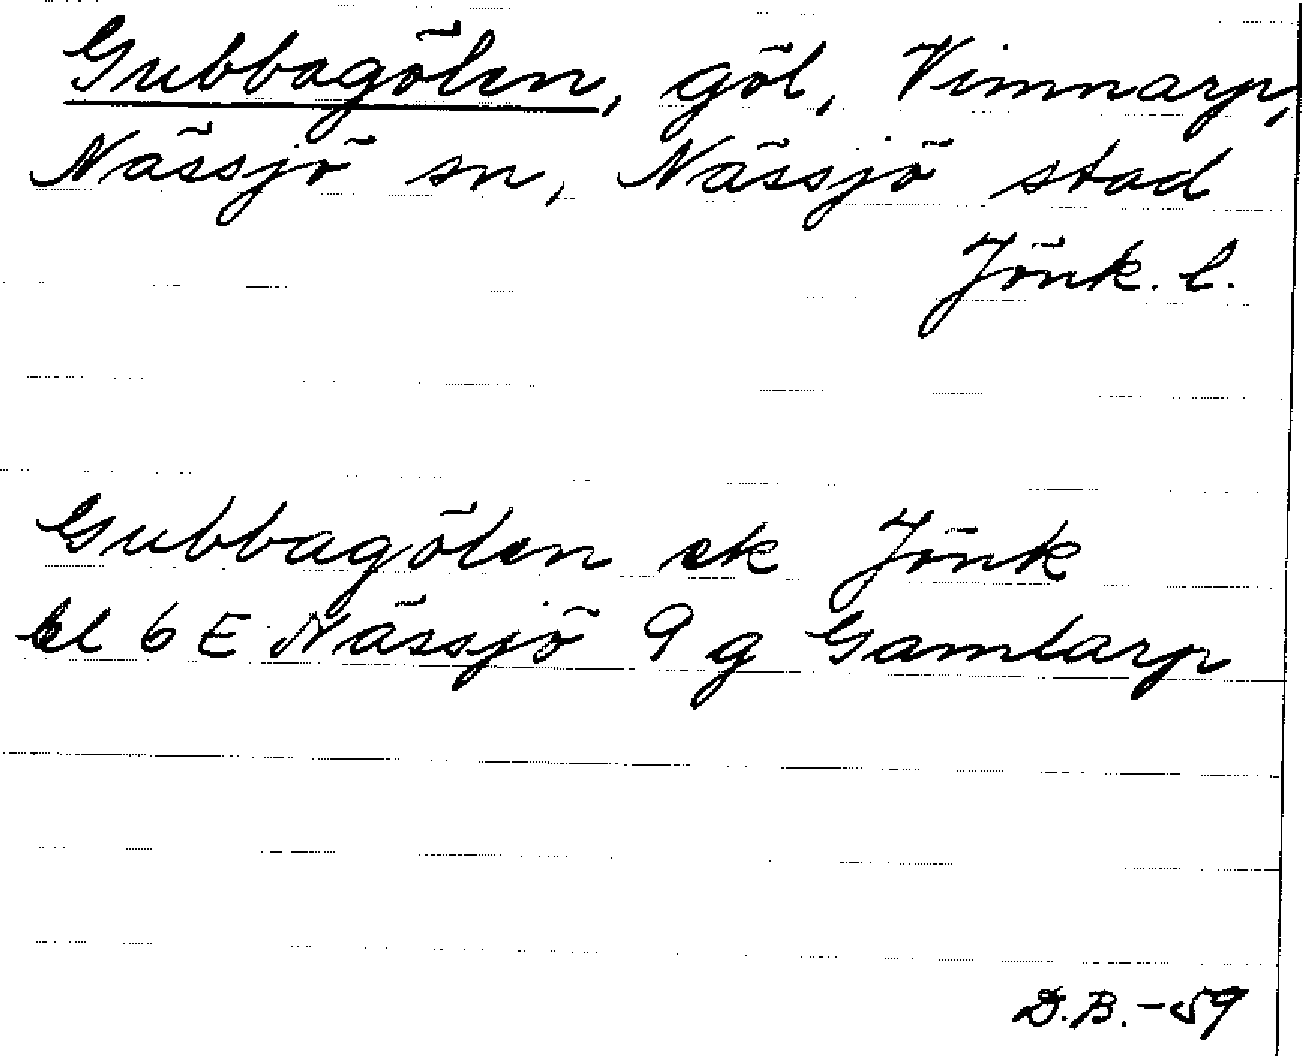 Gubbagölen, göl, Vimnarp,
Nässjö sn, Nässjö stad
Jönk. l.
Gubbagölen ek Jönk
bl 6 E Nässjö 9 g Gamlarp
D.B. -59